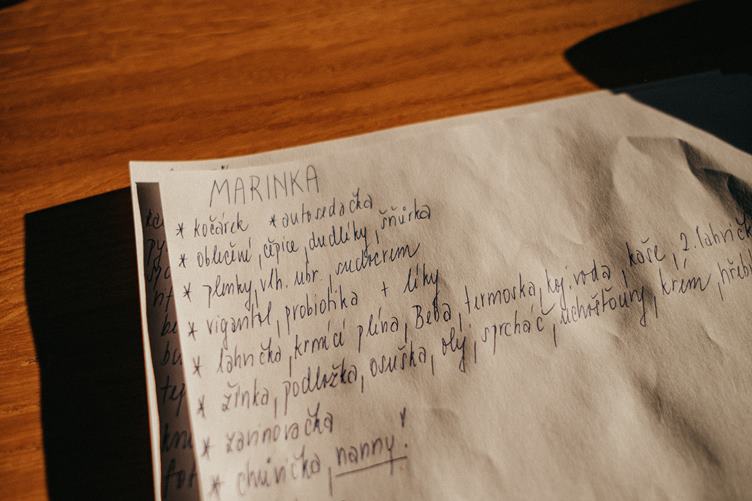 MARINKA
* kočárek * autosedačka
* oblečení, čepice, dudlíky, šňůrka
* plenky, vlh. ubr., sudocrem
* vigantol, probiotika + léky
* lahvička, krmící plína, Beba, termoska, koj. voda, kaše, 2. lahvičk
* žínka, podložka, osuška, olej, sprcháč, uchošťoury, krém, hřeb
* zavinovačka
* chůvička, nanny!